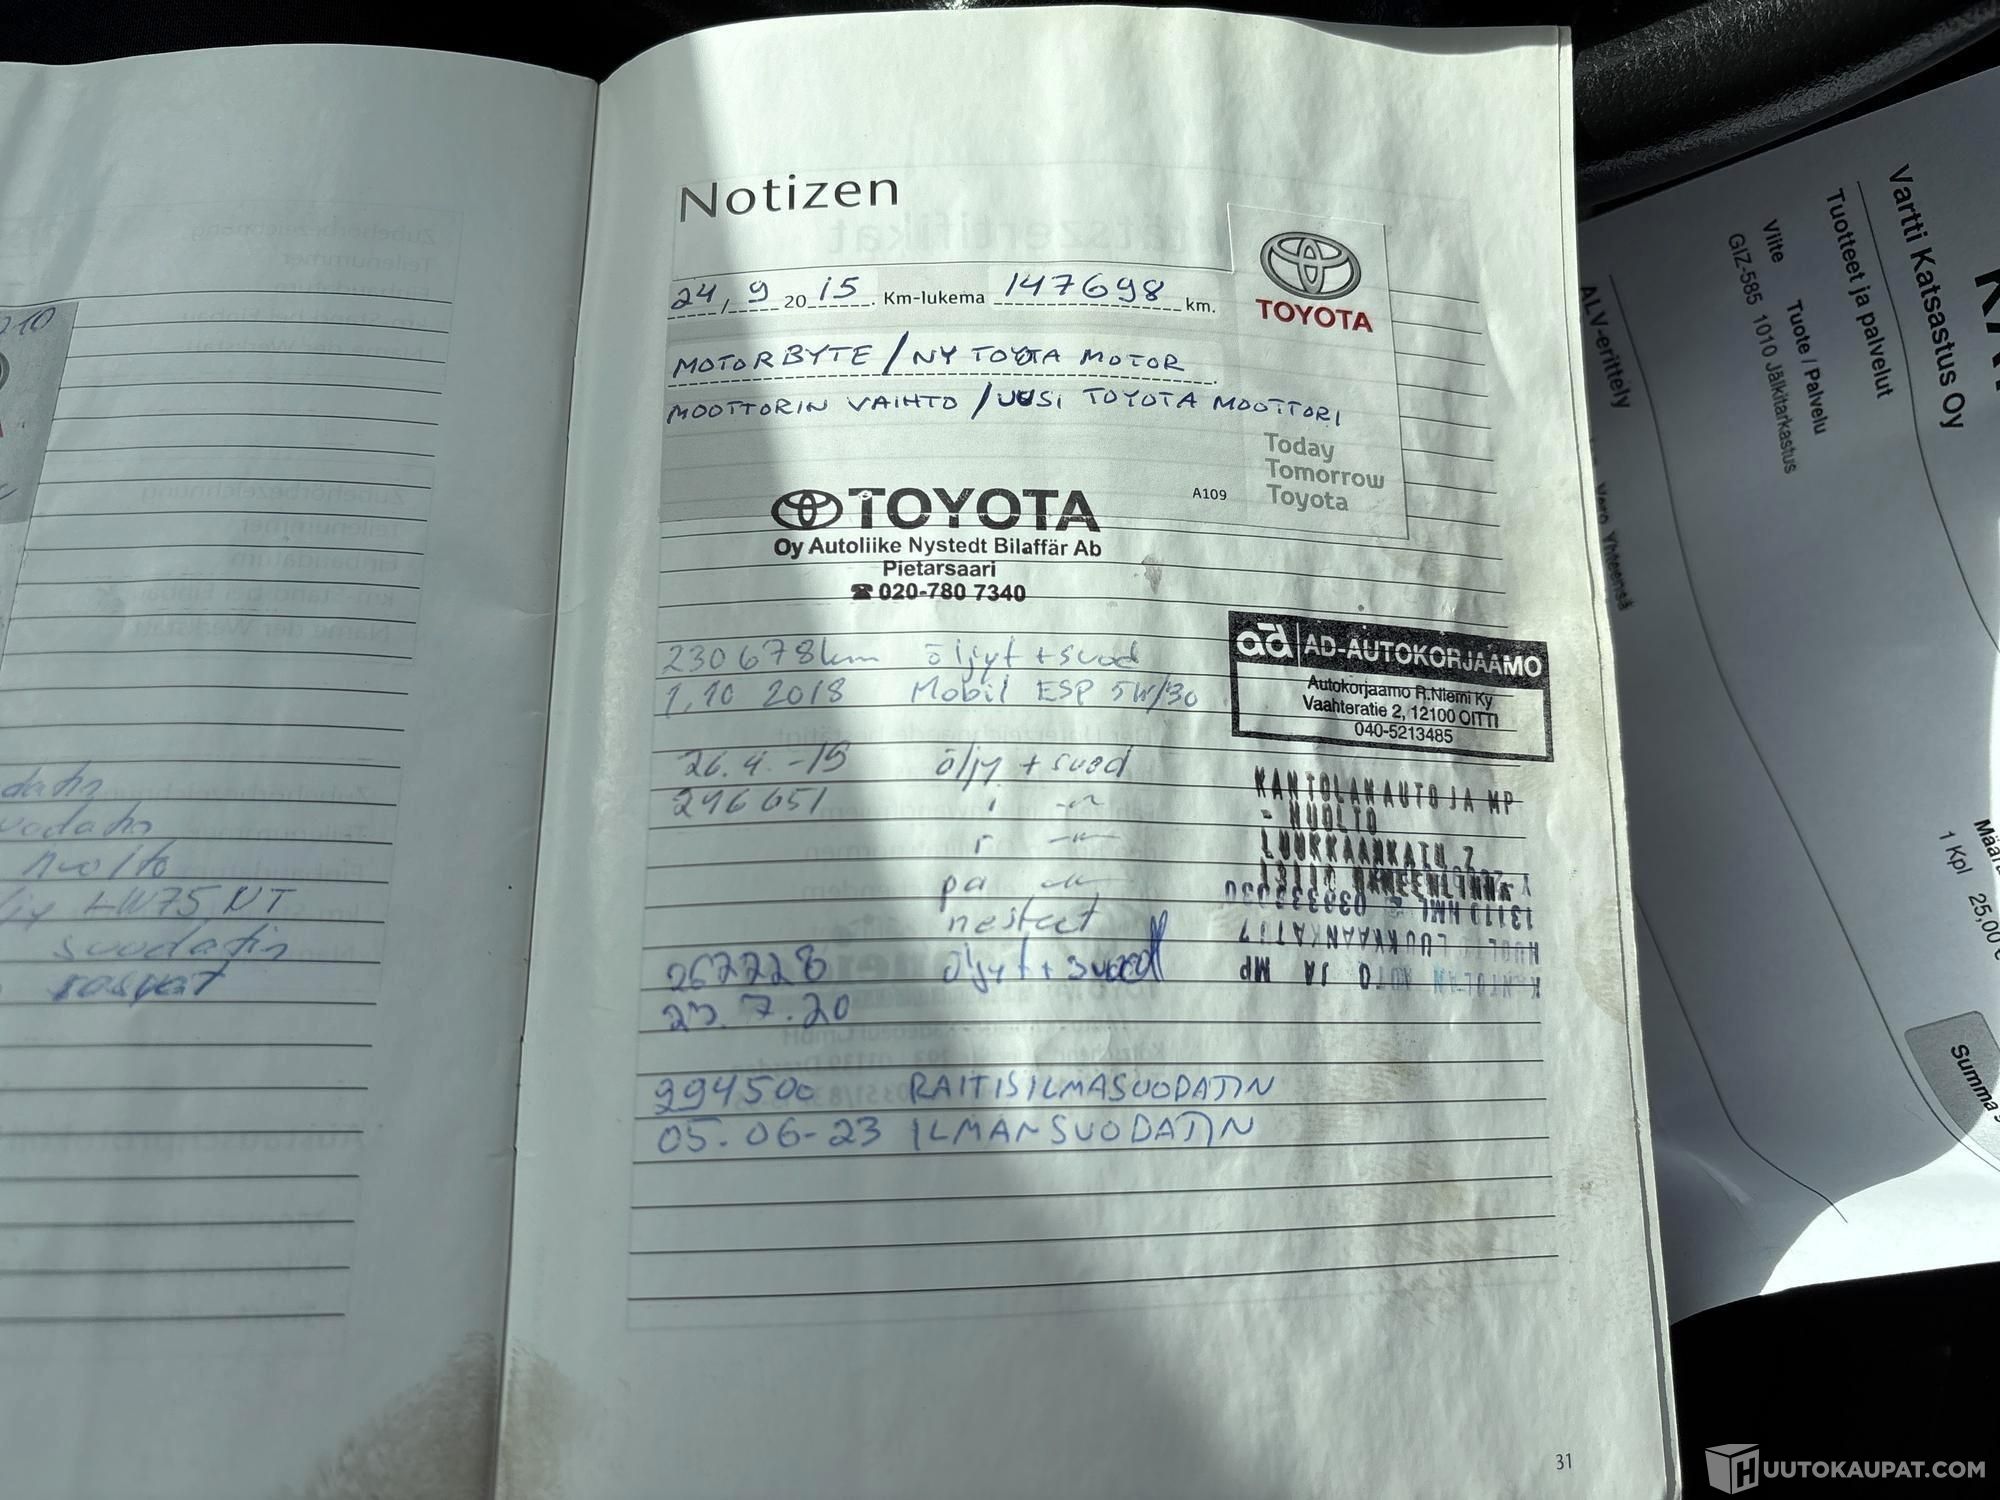 210
datin
nuolto
75 NT
suodatin
raspat
Notizen
24, 9 20 15. Km-lukema 147698 km.
TOYOTA
MOTORBYTE / NY TOYOTA MOTOR
MOOTTORIN VAIHTO / UUSI TOYOTA MOOTTORI
Today
Tomorrow
Toyota
A109
TOYOTA
Oy Autoliike Nystedt Bilaffär Ab
Pietarsaari
☎ 020-780 7340
230678km öljyt + suod
1.10 2018 Mobil ESP 5W/30
ad AD-AUTOKORJAAMO
Autokorjaamo R.Niemi Ky
Vaahteratie 2, 12100 OITTI
040-5213485
26.4.-19 öljy + suod
246651 i -"-
r -"-
pa -"-
nesteet
KANTOLAN AUTO JA MP
- HUOLTO
LUUKKAANKATU 7
267728 öljyt + suod
23.7.20
KANTOLAN AUTO JA MP
294500 RAITISILMASUODATIN
05.06-23 ILMANSUODATIN
31
Vartti Katsastus Oy
Tuotteet ja palvelut
Viite Tuote / Palvelu
GIZ-585 1010 Jälkitarkastus
ALV-erittely
Vero Yhteensä
1 Kpl 25,00
Summa
HUUTOKAUPAT.COM